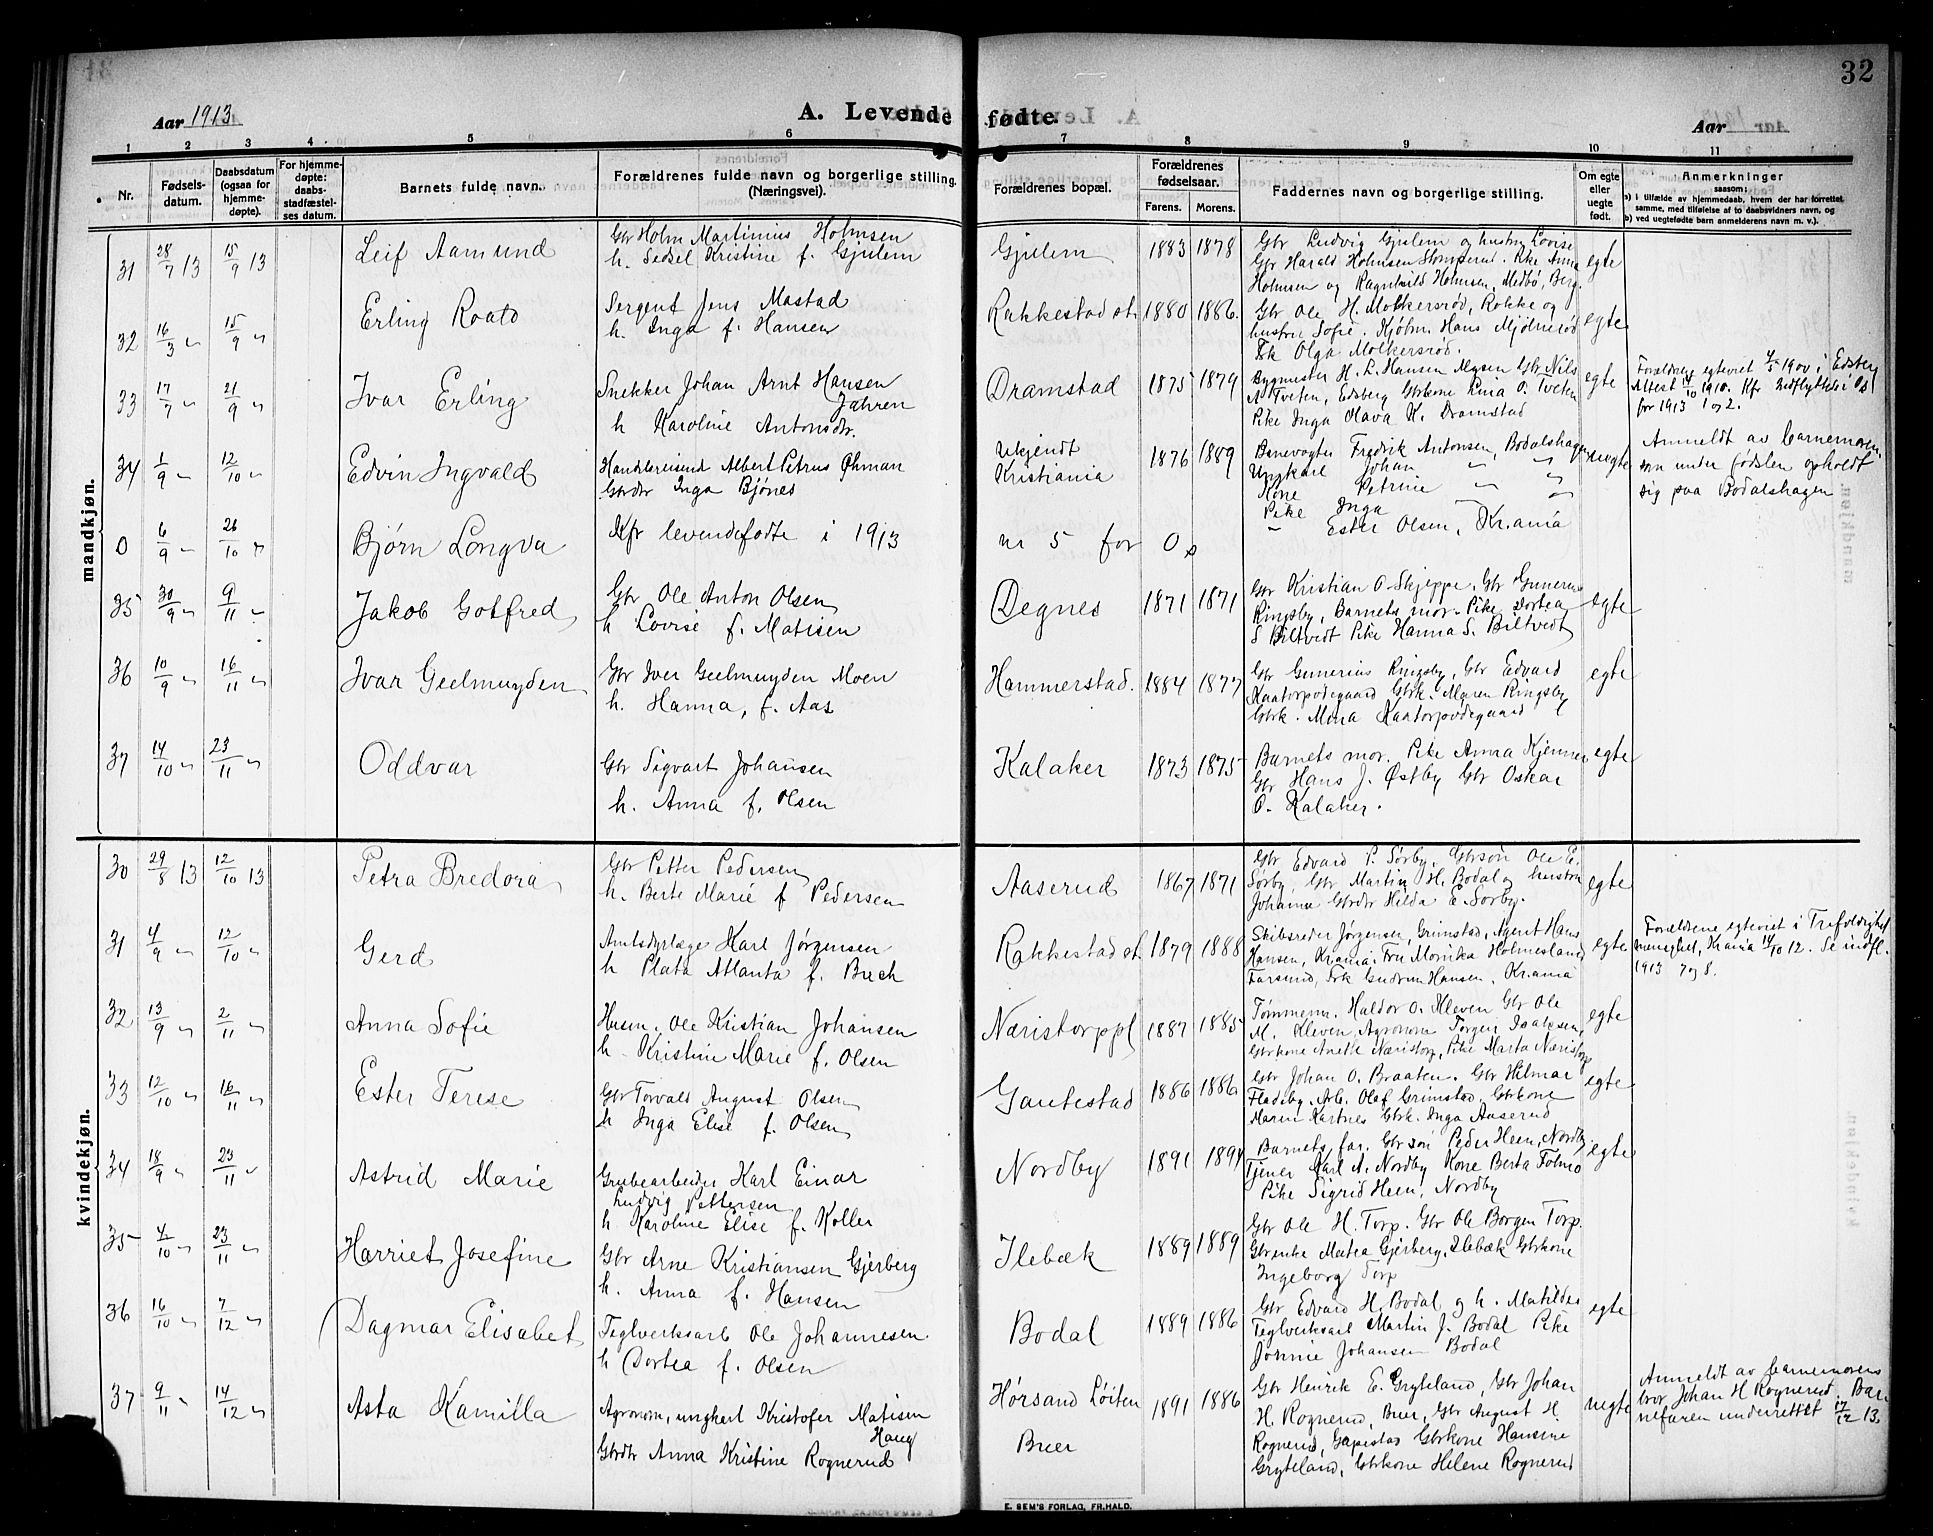 32
Aar 1913
A. Levende fødte.
Aar
1 2 3 4 5 6 7 8 9 10 11
Nr.
Fødselsdatum.
Daabsdatum (ogsaa for hjemmedøpte).
For hjemmedøpte: daabsstadfæstelses datum.
Barnets fulde navn.
Forældrenes fulde navn og borgerlige stilling. (Næringsvei).
Forældrenes bopæl.
Forældrenes fødselsaar.
Farens. Morens.
Faddernes navn og borgerlige stilling.
Om egte eller uegte født.
Anmerkninger
saasom:
a) i tilfælde av hjemmedaab, hvem der har forrettet
samme, med tilføielse af to daabsvidners navn, og
b) ved uegtefødte barn anmelderens navn m. v.).
mandkjøn.
31 28/7 13 15/9 13 Leif Aamund
Gbr Holm Martinius Holmsen
h. Sedsel Kristine f. Gjulem
Gjulem 1883 1878
Gbr Ludvig Gjulem og hustru Lovise
Gbr Harald Holmsen Pike Anna
Holmsen og Ragnhild Holmsen, Medbø, Berg.
egte
32 16/3 " 15/9 " Erling Roald
Sergent Jens Mastad
h. Inga f. Hansen
Rakkestad st. 1880 1886.
Gbr Ole H. Molkersrød, Rokke og
hustru Sofie. Kjøbm. Hans Mjølnerød
Frk Olga Molkersrød.
egte
33 17/7 " 21/9 " Ivar Erling
Snekker Johan Arnt Hansen
Jahren
h Karoline Antonsdr.
Dramstad 1875 1879
Bygmester H. L. Hansen Mysen Gbr Nils
A Tveten, Edsberg Gbrkone Lina O. Tveten
Pike Inga Olava K. Dramstad
egte
Forældrene egteviet 4/5 1900 i Edsberg
Attest 14/10 1910. Kfr indflyttede i Os
for 1913 1 og 2.
34 1/9 " 12/10 " Edvin Ingvald
Handlsreisend Albert Petrus Øhman
Gbrdr Inga Bjønes
Ukjendt
Kristiania
1876 1889
Banevogter Fredrik Antonsen, Bodalshagen
Ungkarl Johan " "
Kone Petrine " "
Pike Inga
" Ester Olsen, Kr.ania
uegte
Anmeldt av barnemoren
som under fødslen opholdt
sig paa Bodalshagen
0 6/9 " 26/10 " Bjørn Longva
Kfr levendefødte i 1913 nr 5 for Os
35 30/9 " 9/11 " Jakob Gotfred
Gbr Ole Anton Olsen
h Lovise f. Matisen
Degnes 1871 1871
Gbr Kristian O. Skjeppe, Gbr Gunerius
Ringsby, Barnets mor. Pike Dortea
S Biltvedt Pike Hanna S. Biltvedt
egte
36 10/9 " 16/11 " Ivar Geelmuyden
Gbr Iver Geelmuyden Moen
h. Hanna, f. Aas
Hammerstad. 1884 1877
Gbr Gunerius Ringsby, Gbr Edvard
Kaatorpødegaard Gbrk. Maren Ringsby
Gbrk. Mina Kaatorpødegaard
egte
37 14/10 " 23/11 " Oddvar
Gbr Sigvart Johansen
h. Anna f. Olsen
Kalaker 1873 1875
Barnets mor, Pike Anna Kjenner
Gbr Hans J. Østby Gbr Oskar
O. Kalaker.
egte
kvindekjøn.
30 29/8 13 12/10 13 Petra Bredora
Gbr Petter Pedersen
h. Berte Marie f Pedersen
Aaserud 1867 1871
Gbr Edvard P. Sørby, Gbrsøn Ole E.
Sørby, Gbr Martin H. Bodal og hustru
Johanne Gbrdr Hilda E. Sørby.
egte
31 4/9 " 12/10 " Gerd
Amtsdyrlæge Karl Jørgensen
h Plata Atlanta f. Bech
Rakkestad st. 1879 1888
Skibsreder Jørgensen, Grimstad, Agent Hans
Hansen, Krania. Fru Monika Holmesland
Farsund, Frk Gudrun Hansen, Kr.ania
egte
Forældrene egteviet i Trefoldighet
menighet, Krania 14/10 12. Se indfl.
1913 7 og 8.
32 13/9 " 2/11 " Anna Sofie
Husm. Ole Kristian Johansen
h. Kristine Marie f. Olsen
Næristorppl 1887 1885
Tømmerm. Haldor O. Kleven Gbr Ole
M. Kleven, Agronom Torgen Isaksen,
Gbrkone Anette Næristorp, Pike Marta Næristorp
egte
33 12/10 " 16/11 " Ester Terese
Gbr Torvald August Olsen
h Inga Elise f. Olsen
Gautestad 1886 1886
Gbr Johan O. Braaten. Gbr Hilmar
Fladeby. Arb. Olaf Grimstad, Gbrkone
Maren Kartnes Gbrk. Inga Aaserud
egte
34 18/9 " 23/11 " Astrid Marie
Grubearbeider Karl Einar
Ludvig Pettersen
h. Karoline Elise f. Koller
Nordby 1891 1894
Barnets far. Gbr søn Peder Heen, Nordby.
Tjener Karl A. Nordby Kone Berta Folmo
Pike Sigrid Heen, Nordby
egte
35 4/10 " 23/11 " Harriet Josefine
Gbr Arne Kristiansen Gjerberg
h. Anna f. Hansen
Ilebæk 1889 1889
Gbr Ole H. Torp. Gbr Ole Borgen Torp.
Gbrenke Matea Gjerberg, Ilebæk Gbrkone
Ingeborg Torp
36 16/10 " 7/12 " Dagmar Elisabet
Teglverksarb Ole Johannesen.
h Dortea f. Olsen
Bodal 1889 1886
Gbr Edvard H. Bodal og h. Matilde
Teglverksarb Martin J. Bodal Pike
Jonnie Johansen Bodal
egte
37 9/11 " 14/12 " Asta Kamilla
Agronom, ungkarl Kristofer Matisen
Haug
Gbrdr Anna Kristine Rognerud
Hørsand Løiten
Buer
1891 1886
Gbr Henrik E. Gryteland, Gbr Johan
H. Rognerud, Buer, Gbr August H.
Rognerud, Gapestad Gbrkone Hansine
Gryteland, Gbrkone Helene Rognerud
uegte
Anmeldt av barnemorens
bror Johan H Rognerud. Bar
nefaren underrettet 17/12 13
E. SEM'S FORLAG, FR.HALD.